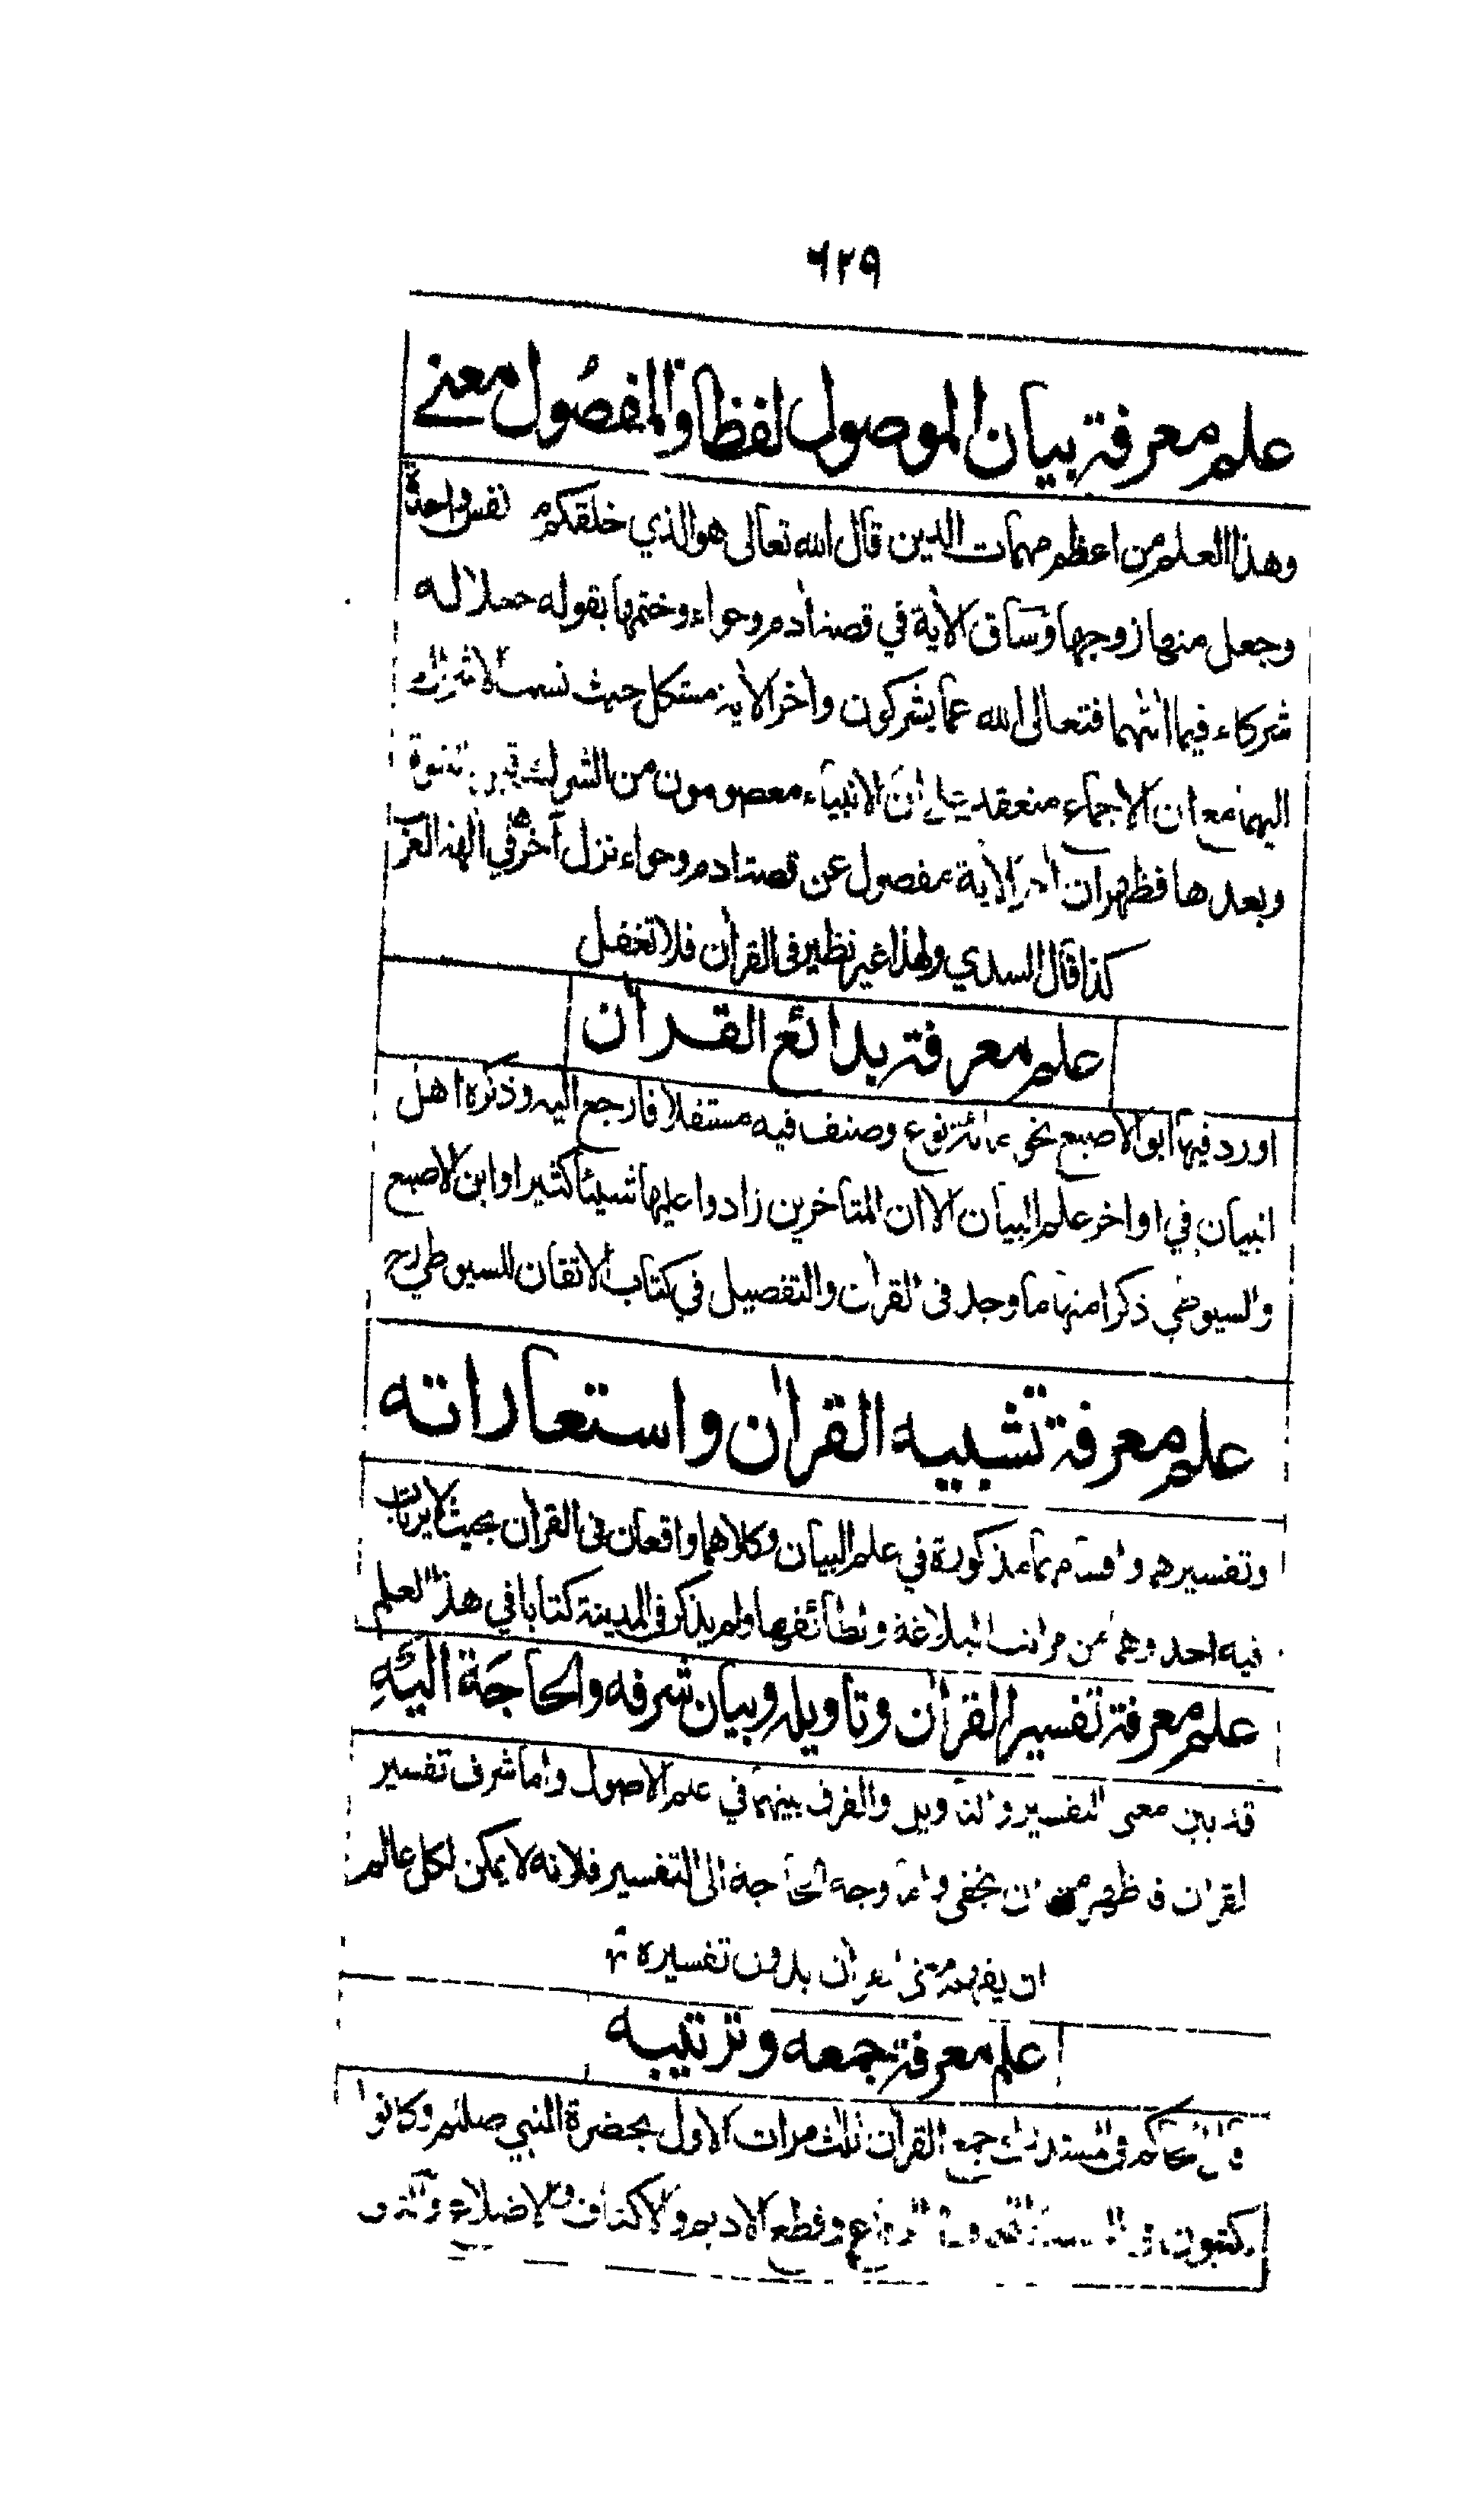 ٦٢٩
علم معرفة بيان الموصول لفظا والمفصول معنى
وهذا العلم من اعظم مهمات الدين قال الله تعالى هو الذي خلقكم نفس واحدة
وجعل منها زوجها وساق الآية في قصة آدم وحواء وختمها بقوله جعلا له
شركاء فيما آتٰهما فتعالى الله عما يشركون وآخر الآية مشكل حيث نسب الاشراك
اليهما مع ان الاجماع منعقد على ان الانبياء معصومون من الشرك قبل النبوة
وبعدها فظهر ان آخر الآية مفصول عن قصة آدم وحواء نزل آخره في آلهة العرب
كذا قال السدي ولهذا غير نظير فى القرآن فلا تغفل
علم معرفة بدائع القرآن
اورد فيها ابو الاصبع نحو مائة نوع وصنف فيه مستقلا فارجع اليه وذكره اهل
البيان في اواخر علم البيان الا ان المتاخرين زادوا عليها شيئا كثيرا وابن الاصبع
والسيوطي ذكرا منها ما وجد فى القرآن والتفصيل في كتاب الاتقان للسيوطي رح
علم معرفة تشبيه القرآن واستعاراته
وتفسيرهم واقسامهما مذكورة في علم البيان وكلاهما واقعان فى القرآن بحيث لا يرتاب
فيه احد وهما من مراتب البلاغة ولطائفها ولم يذكر فى المدينة كتابا في هذا العلم
علم معرفة تفسير القرآن وتاويله وبيان شرفه والحاجة اليه
قد بين معنى التفسير والتاويل والفرق بينهما في علم الاصول واما شرف تفسير
القران فاظهر من ان يخفى واما وجه الحاجة الى التفسير فلانه لا يمكن لكل عالم
ان يفهم معنى القرآن بدون تفسيره
علم معرفة جمعه وترتيبه
قال الحاكم في المستدرك جمع القرآن ثلث مرات الاول بحضرة النبي صلعم وكانوا
يكتبون في وقطع الاديم والاكتاف والاضلاع